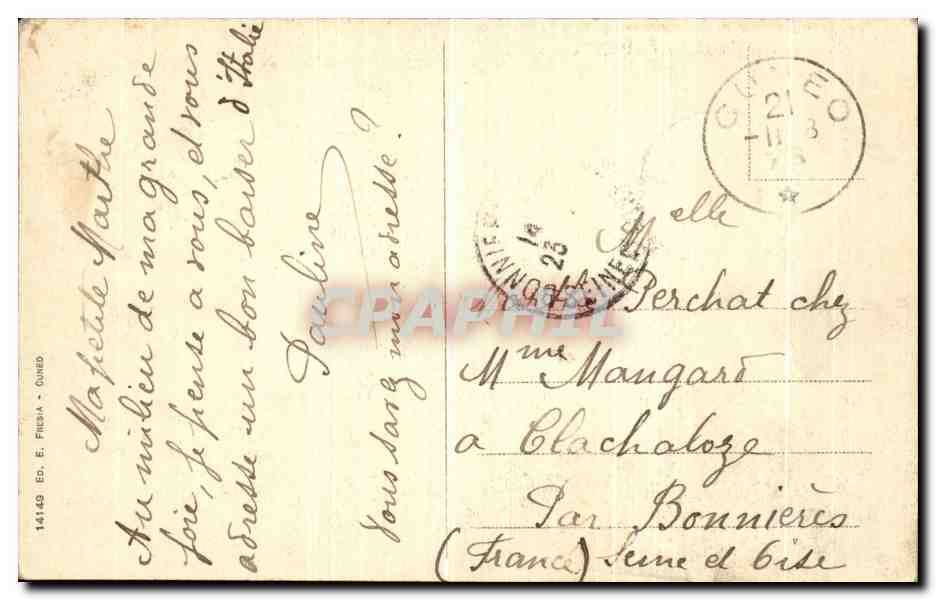 Ma petite Marthe
Au milieu de ma grande
foie, je pense a vous, et vous
adresse un bon baiser d'Italie
Pauline
Vous savez mon adresse ?
14149 ED. E. FRESIA - CUNEO
CUNEO
21
11 8
BONNIÈRES
23
Melle
Marthe Perchat chez
Mme Mangard
a Clachaloze
Par Bonnièrès
(France) Seine et Oise
CPAPHIL